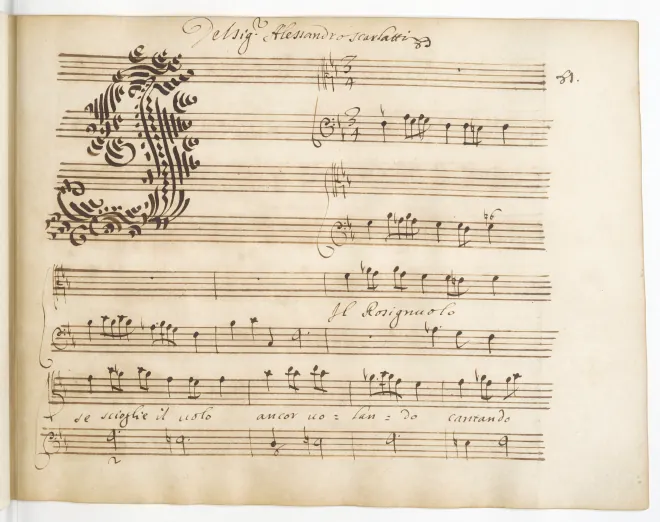 Del Sig.r Alessandro Scarlatti
81.
3
4
3
4
I
♮6
Il Rosignuolo
se scioglie il uolo ancor uo = lan = do cantando
2